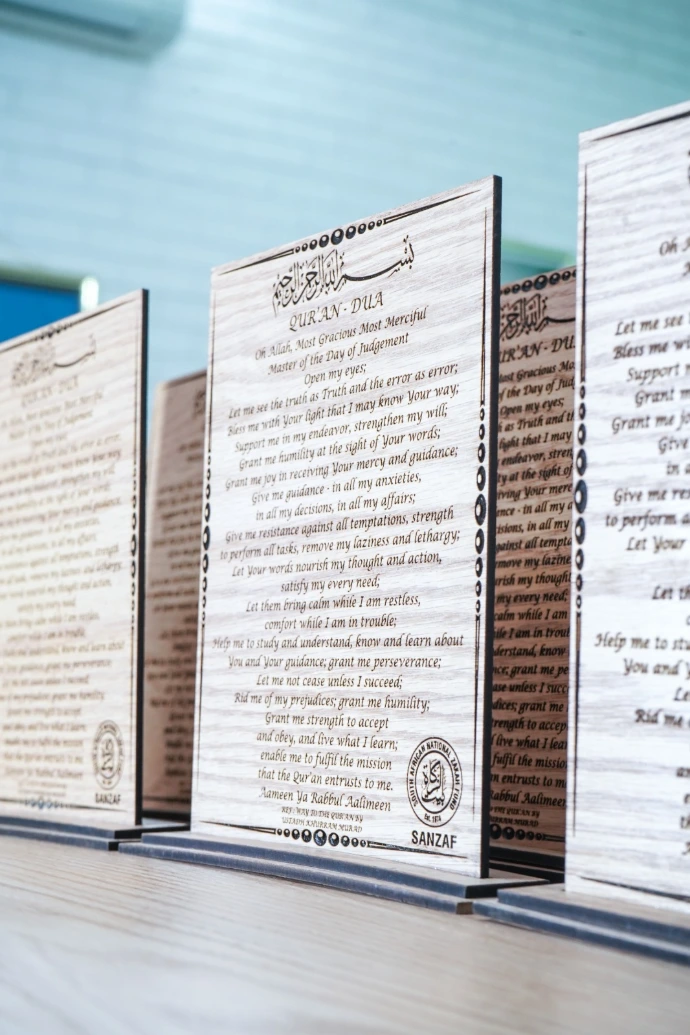 بسم الله الرحمن الرحيم
QUR'AN - DUA
Oh Allah, Most Gracious Most Merciful
Master of the Day of Judgement
Open my eyes;
Let me see the truth as Truth and the error as error;
Bless me with Your light that I may know Your way;
Support me in my endeavor, strengthen my will;
Grant me humility at the sight of Your words;
Grant me joy in receiving Your mercy and guidance;
Give me guidance - in all my anxieties,
in all my decisions, in all my affairs;
Give me resistance against all temptations, strength
to perform all tasks, remove my laziness and lethargy;
Let Your words nourish my thought and action,
satisfy my every need;
Let them bring calm while I am restless,
comfort while I am in trouble;
Help me to study and understand, know and learn about
You and Your guidance; grant me perseverance;
Let me not cease unless I succeed;
Rid me of my prejudices; grant me humility;
Grant me strength to accept
and obey, and live what I learn;
enable me to fulfil the mission
that the Qur'an entrusts to me.
Aameen Ya Rabbul Aalimeen
REF: WAY TO THE QUR'AN BY
USTADH KHURRAM MURAD
SOUTH AFRICAN NATIONAL ZAKAH FUND
Est. 1974
SANZAF